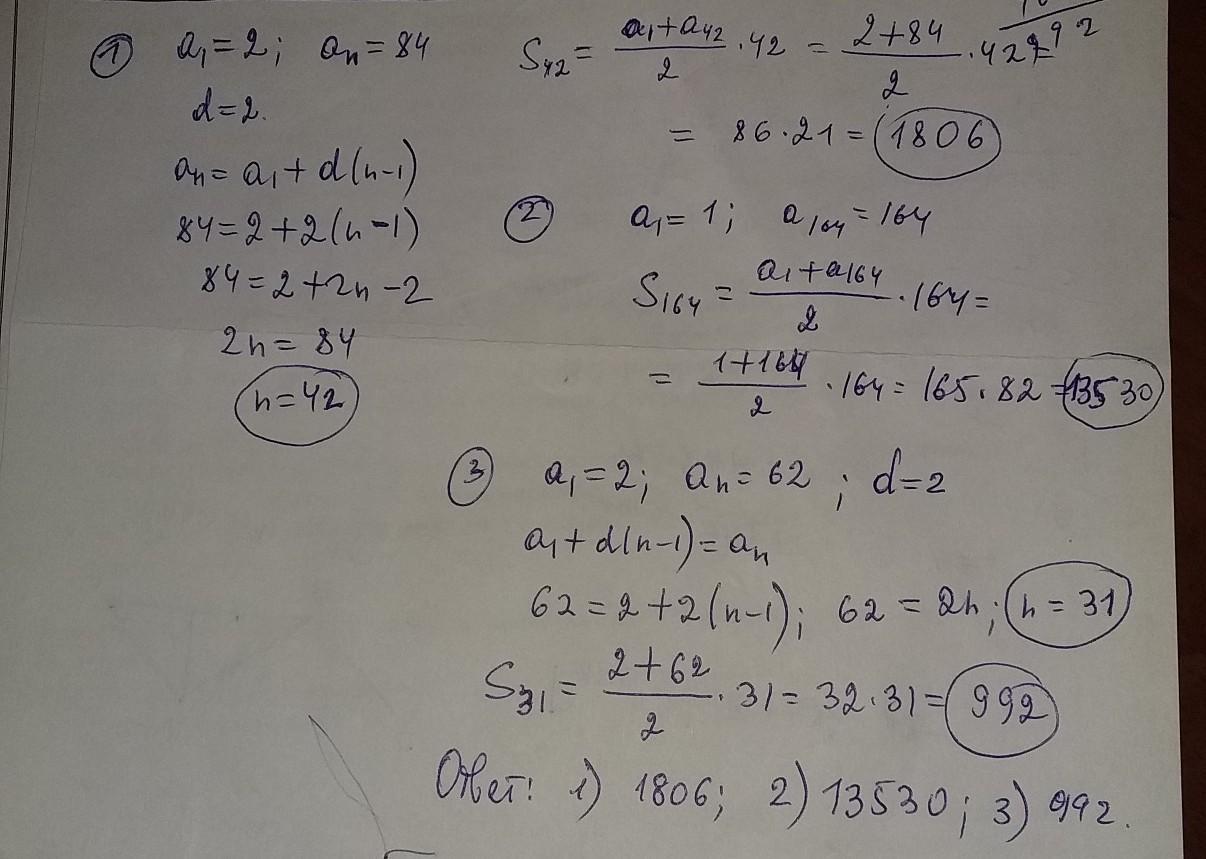 ① a₁=2; aₙ=84
d=2.
aₙ=a₁+d(n-1)
84=2+2(n-1)
84=2+2n-2
2n=84
n=42
S₄₂ = (a₁+a₄₂)/2 · 42 = (2+84)/2 · 42 =
= 86·21 = 1806
② a₁=1; a₁₆₄=164
S₁₆₄ = (a₁+a₁₆₄)/2 · 164 =
= (1+164)/2 · 164 = 165·82 = 13530
③ a₁=2; aₙ=62; d=2
a₁+d(n-1)=aₙ
62=2+2(n-1); 62=2n; n=31
S₃₁ = (2+62)/2 · 31 = 32·31 = 992
Ответ: 1) 1806; 2) 13530; 3) 992.